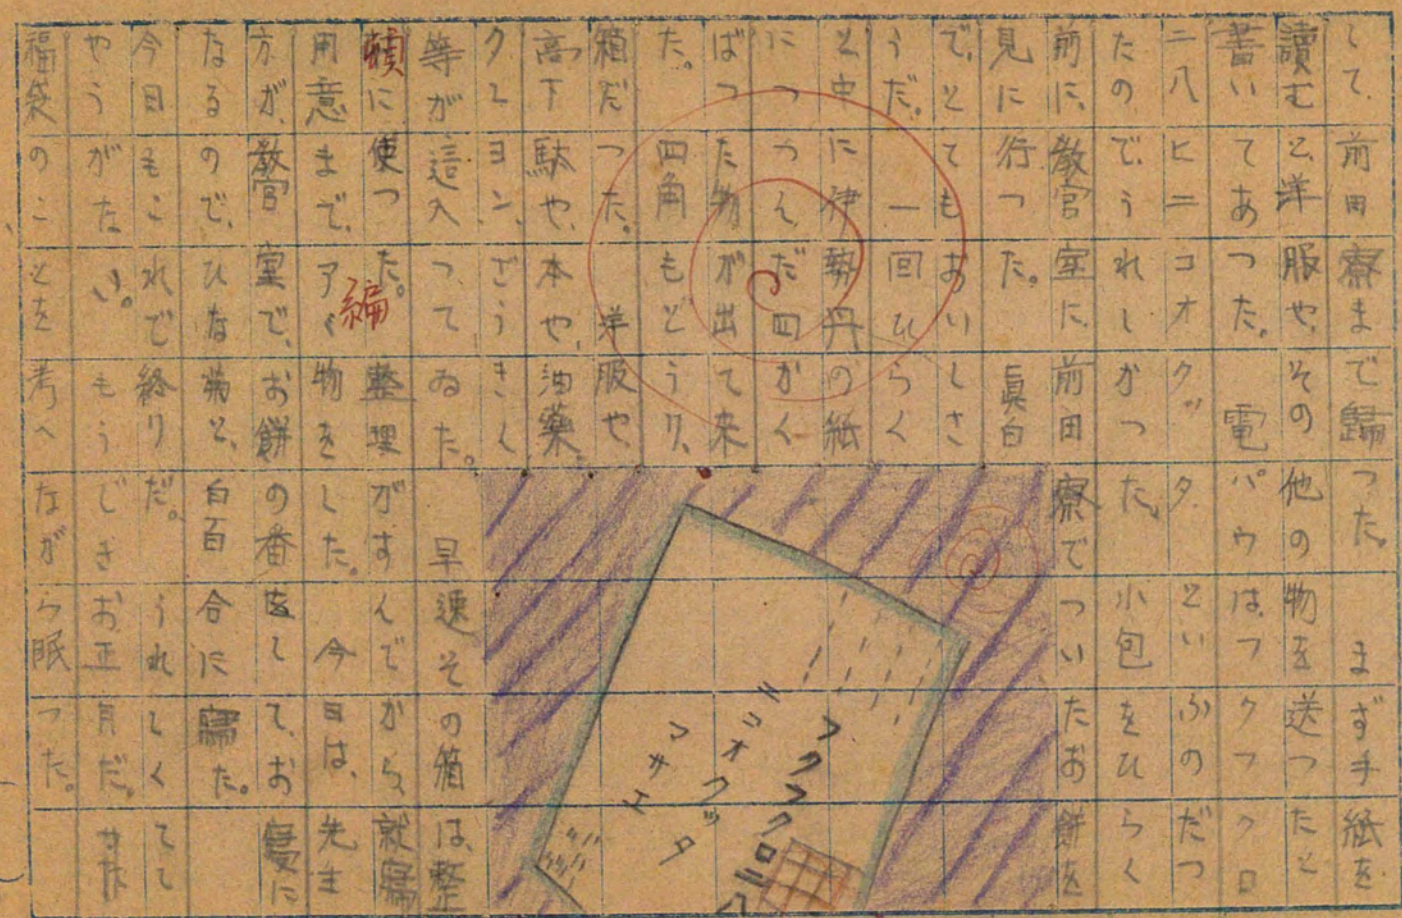 して、前田寮まで歸つた。　まず手紙を
讀むと、洋服や、その他の物を送つたと
書いてあつた。　電パウは、フクフクロ
ニ八ヒニコオクッタ、といふのだつ
たので、うれしかつた。小包をひらく
前に、教官室に、前田寮でついたお餅を
見に行つた。　眞白
で、とてもおいしさ
うだ。　一回ひらく
と、中に伊勢丹の紙
につつんだ四かく
ばつた物が出て来
た。　四角もどうり、
箱だつた。　洋服や、
高下駄や、本や、油薬、
クレヨン、ざうきん
等が這入つてゐた。　早速その箱は、整
頓に使つた。　整理がすんでから、就寢
編
用意まで、アミ物をした。　今日は、先生
方が、教官室で、お餅の番をして、お寢に
なるので、ひな菊と、白百合に寢た。
今日もこれで終りだ。　うれしくて
やうがない。　もうじきお正月だ。
福袋のことを考へながら眠つた。
フクフクロニ八
ニコオクッタ
マサエ